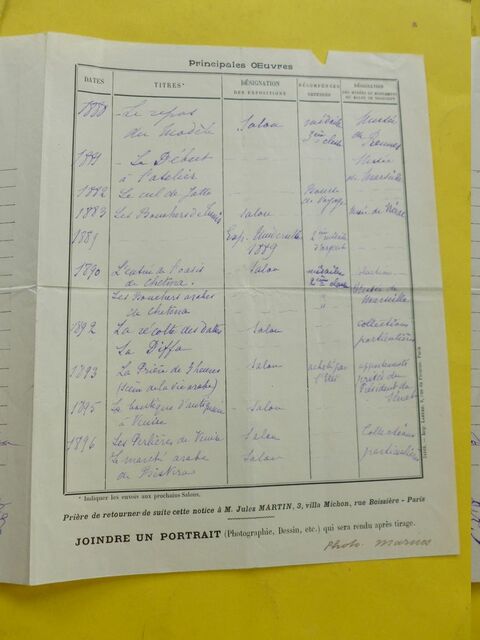 Principales Œuvres
DATES
TITRES*
DÉSIGNATION
DES EXPOSITIONS
RÉCOMPENSES
OBTENUES
DÉSIGNATION
1880 Le repos
du Modèle Salon médaille 3ème classe Musée de Rennes
1881 - Le Début
à l'atelier Musée de Marseille
1882 Le cul de Jatte Bourse de voyage
1883 Les Bouchers de Tunis Salon
1889 Exp. Universelle 1889 2ème médaille d'argent
1890 de l'oasis
de Chetma. Salon médaille 2ème classe
Les Bouchers arabes
de Chetma " Musée de Marseille
1892 La récolte des dattes Salon collections particulières
La Diffa
1893 La Prière de 3 heures Salon acheté par l'Etat appartements privés du Président du Sénat
(scène de la vie arabe)
1895 La boutique d'antiquaire
à Venise Salon
1896 Les Perlières de Venise Salon Collections particulières
Le marché arabe
de Salon
* Indiquer les envois aux prochains Salons.
Prière de retourner de suite cette notice à M. Jules MARTIN, 3, villa Michon, rue Boissière - Paris
JOINDRE UN PORTRAIT (Photographie, Dessin, etc.) qui sera rendu après tirage.
Phot.